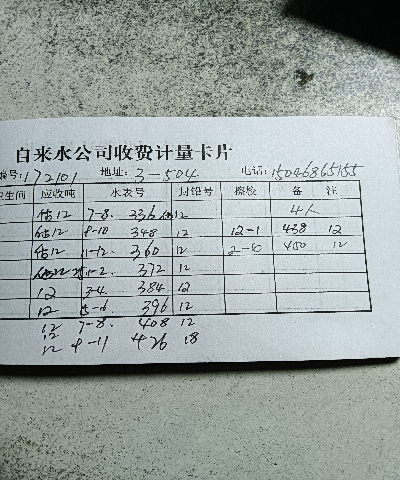 自来水公司收费计量卡片
编号:172101 地址: 3-504 电话:15046865155
卫生间 应收吨 水表号 封铅号 检校 备 注
估12 7-8. 336 12 4人
估12 8-10 348 12 12-1 438 12
估12 11-12. 360 12 2-10 450 12
1-2. 372 12
12 3-4. 384 12
12 5-6. 396 12
12 7-8. 408 12
12
12 9-11 426 18